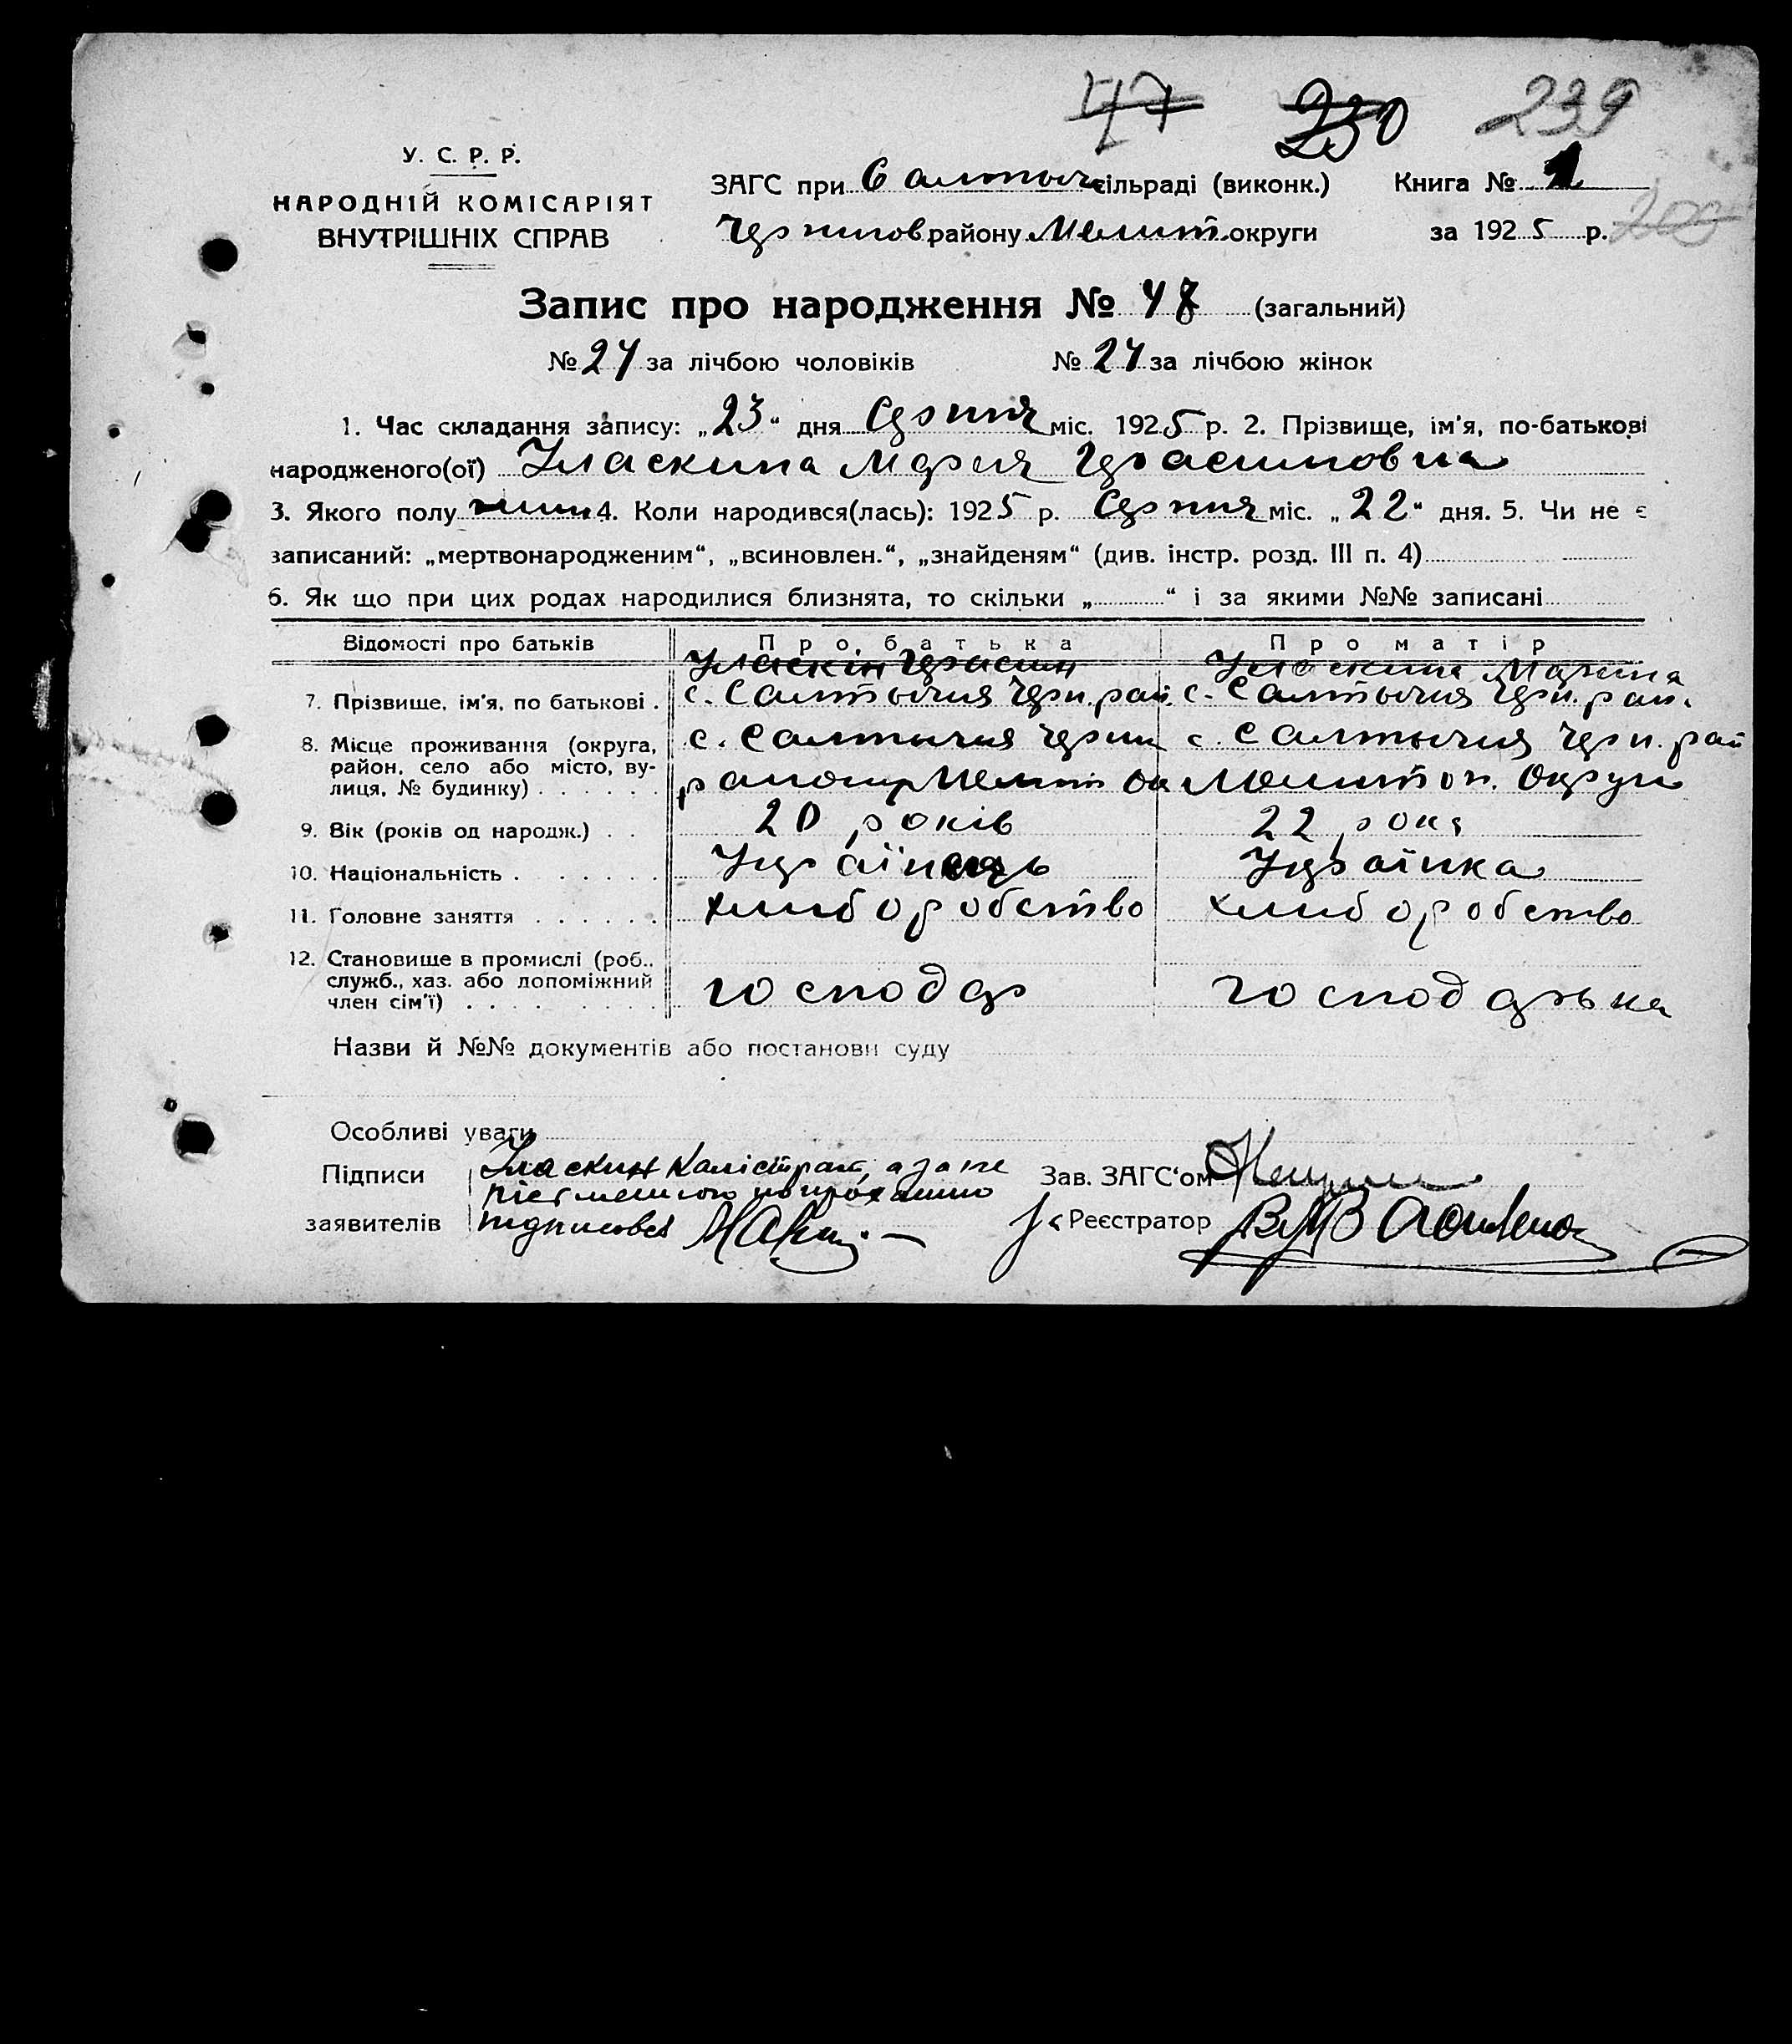 47 230 239
У. С. Р. Р.
НАРОДНІЙ КОМІСАРІЯТ
ВНУТРІШНІХ СПРАВ
ЗАГС при Салтыч сільраді (виконк.) Книга № 1
Чернигов району Мелит. округи за 1925 р. 200
Запис про народження № 48 (загальний)
№ 24 за лічбою чоловіків № 24 за лічбою жінок
1. Час складання запису: „23“ дня Серпня міс. 1925 р. 2. Прізвище, ім'я, по-батькові
народженого(ої) Уласкина Мария Герасимовна
3. Якого полу жин 4. Коли народився(лась): 1925 р. Серпня міс. „22“ дня. 5. Чи не є
записаний: „мертвонародженим“, „всиновлен.“, „знайденям“ (див. інстр. розд. III п. 4)
6. Як що при цих родах народилися близнята, то скільки „ “ і за якими №№ записані
Відомості про батьків Про батька Про матір
Уласкін Герасим Уласкина Марина
7. Прізвище, ім'я, по батькові . с. Салтычия Черн. рай. с. Салтычия Черн. рай.
8. Місце проживання (округа, район, село або місто, вулиця, № будинку) с. Салтычия Черни с. Салтычия Черн. рай
району Мелит Ок Мелитоп. Округи
9. Вік (років од народж.) . . 20 років 22 роки
10. Національність . Українець Українка
11. Головне заняття хлиборобство хлиборобство
12. Становище в промислі (роб., служб., хаз. або допоміжний член сім'ї) господар господарька
Назви й №№ документів або постанови суду
Особливі уваги
Підписи Уласкин Калістрат, а за не
письменного по проханию Зав. ЗАГС'ом
заявителів підписався Реєстратор